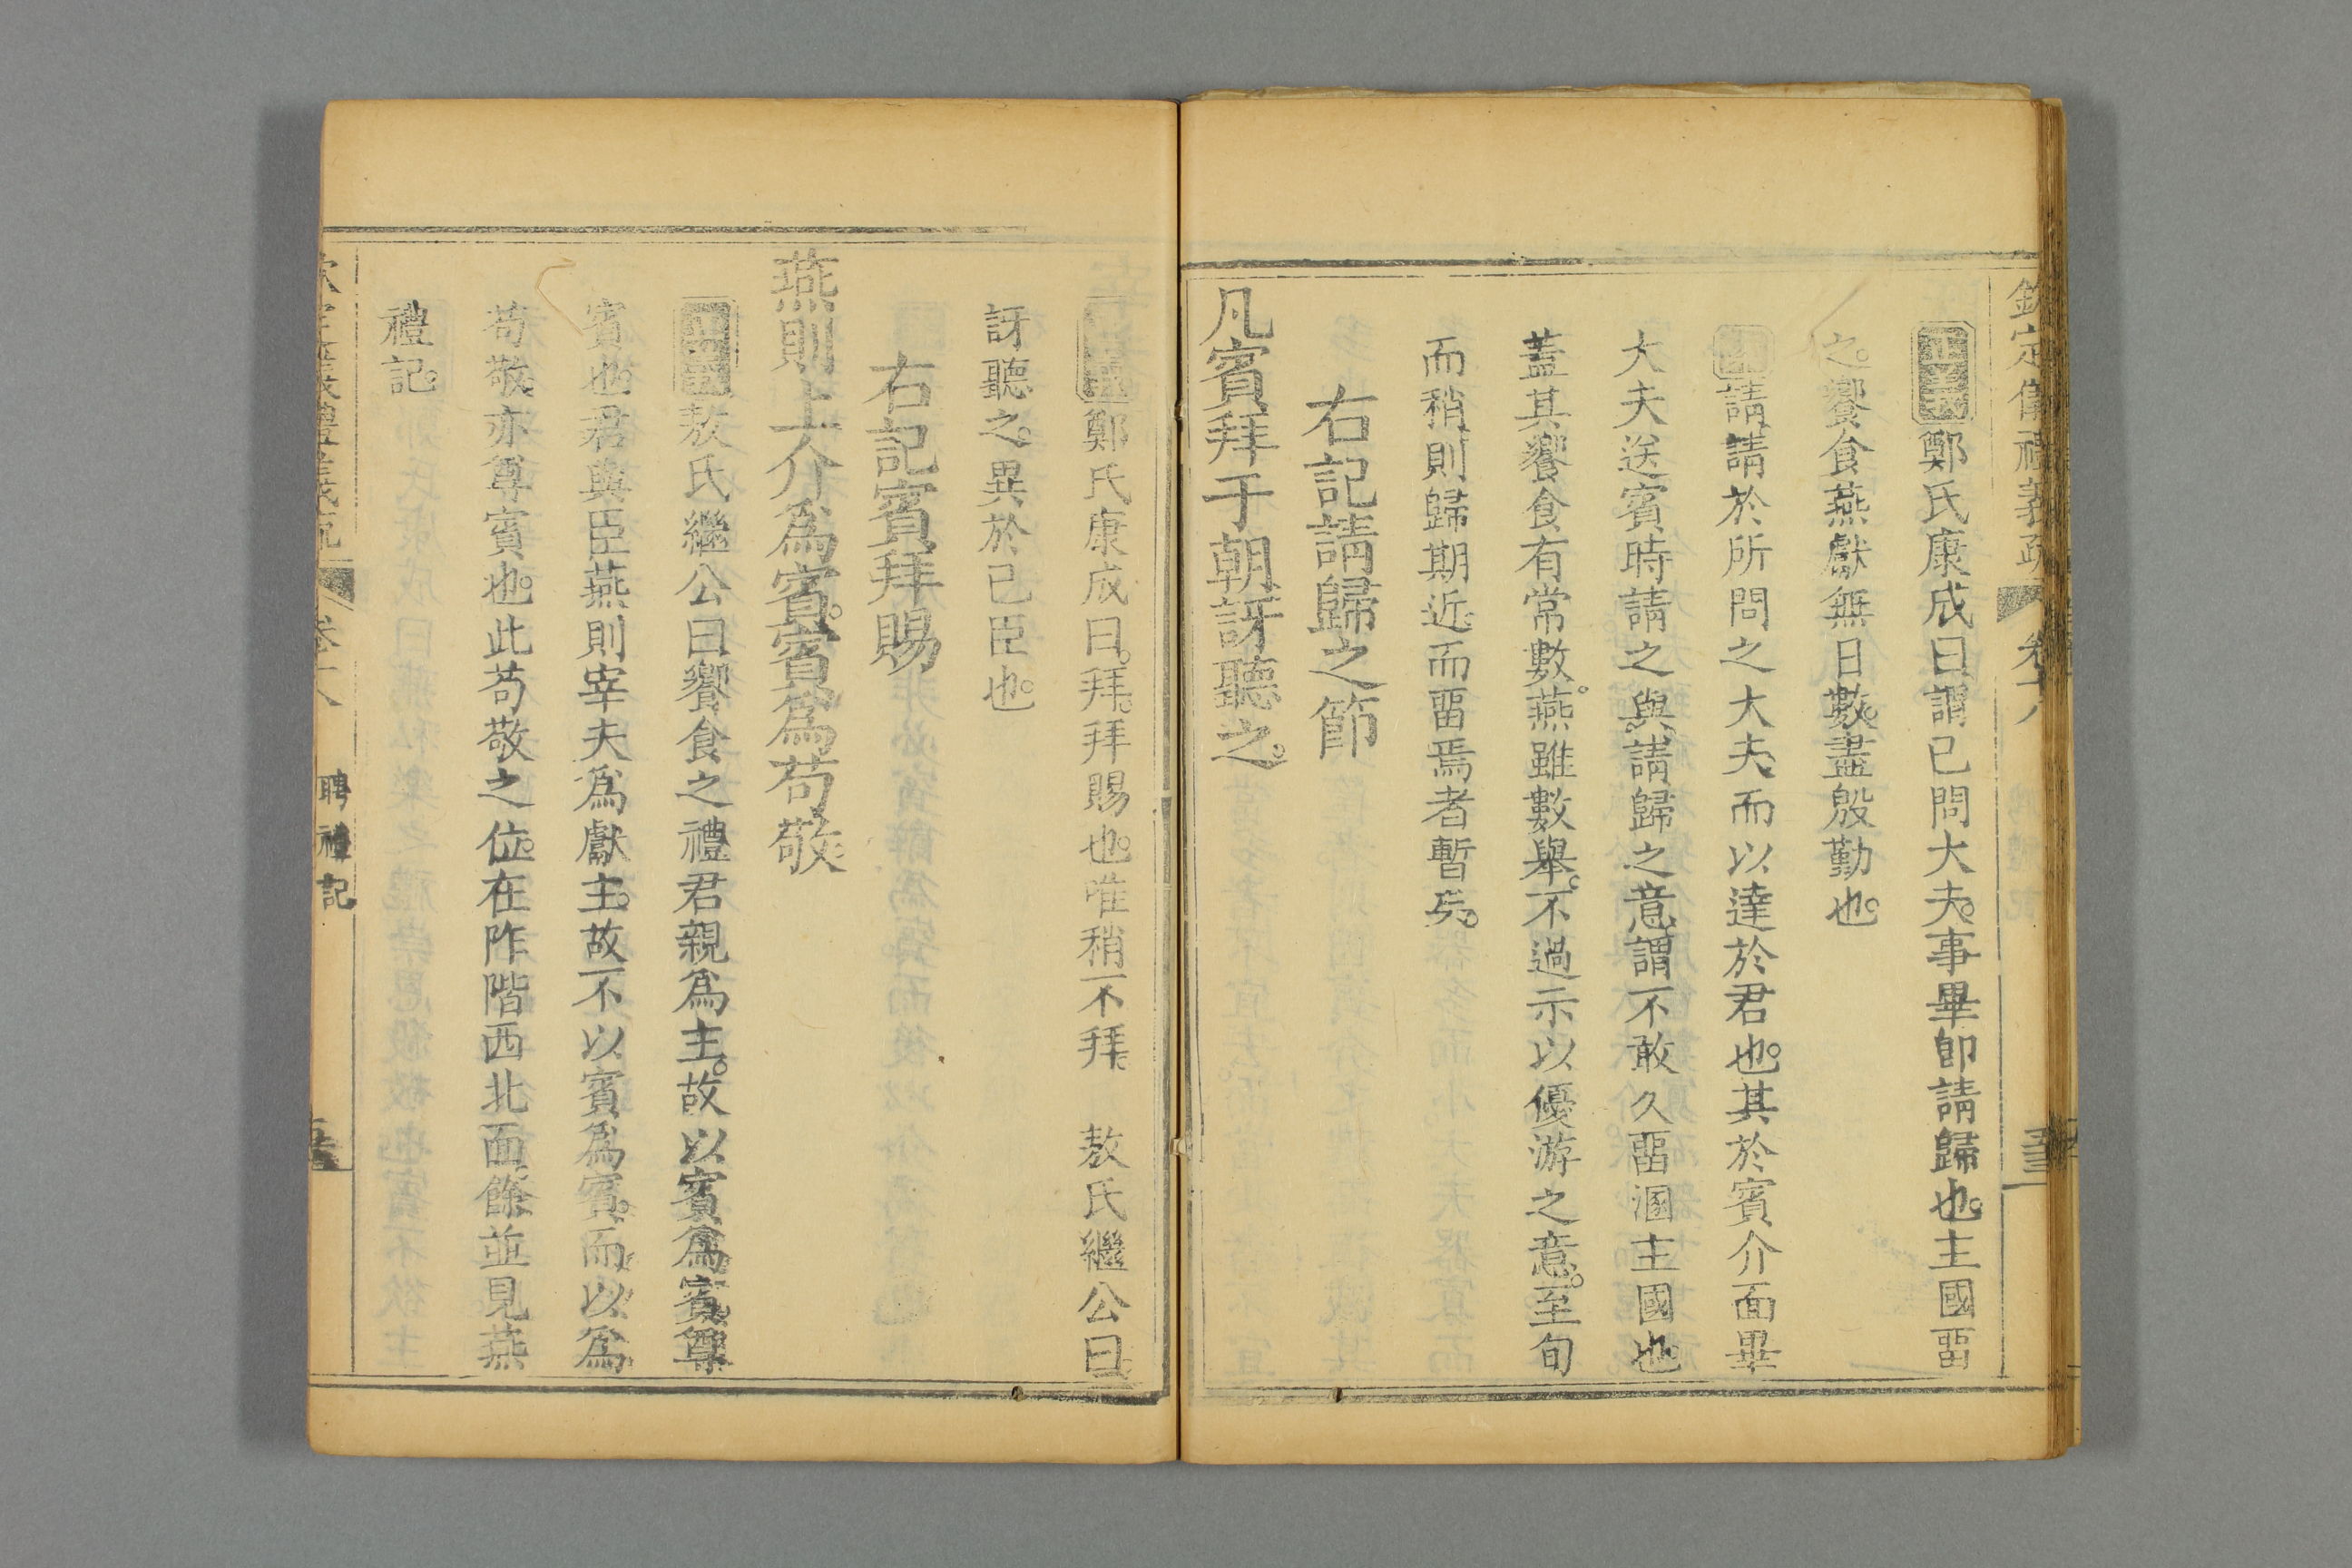 欽定儀禮義疏 卷十八
正義鄭氏康成曰謂已問大夫。事畢即請歸也。主國畱
之。饗食燕獻無日數。盡殷勤也。
案請請於所問之大夫。而以達於君也。其於賓介面畢
大夫送賓時請之與請歸之意。謂不敢久畱溷主國也。
蓋其饗食有常數。燕雖數舉。不過示以優游之意。至旬
而稍則歸期近。而畱焉者暫矣。
右記請歸之節
凡賓拜于朝訝聽之。
正義鄭氏康成曰。拜。拜賜也。唯稍不拜 敖氏繼公曰
訝聽之。異於己臣也。
右記賓拜賜
燕則上介爲賓。賓爲苟敬。
正義敖氏繼公曰饗食之禮君親爲主。故以賓爲賓。尊
賓也。君與臣燕則宰夫爲獻主。故不以賓爲賓。而以爲
苟敬。亦尊賓也。此苟敬之位。在阼階西北面。餘並見燕
禮記。
聘禮記